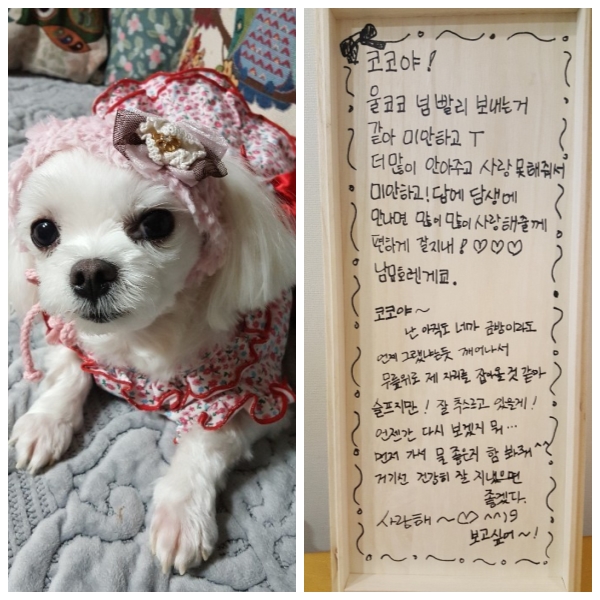 코코야!
울코코 넘 빨리 보내는거
같아 미안하고 ㅜ
더많이 안아주고 사랑못해줘서
미안하고! 담에 담생에
만나면 많이 많이 사랑해줄께
편하게 잘지내! ♡♡♡
코코야~
난 아직도 네가 금방이라도
언제 그랬냐는듯 깨어나서
무릎위로 제 자리를 잡아올 것 같아
슬프지만! 잘 추스르고 있을게!
언젠간 다시 보겠지 뭐…
먼저 가서 물 좋은지 함 봐줘^^
거기선 건강히 잘 지냈으면
좋겠다.
사랑해~♡^^
보고싶어~!